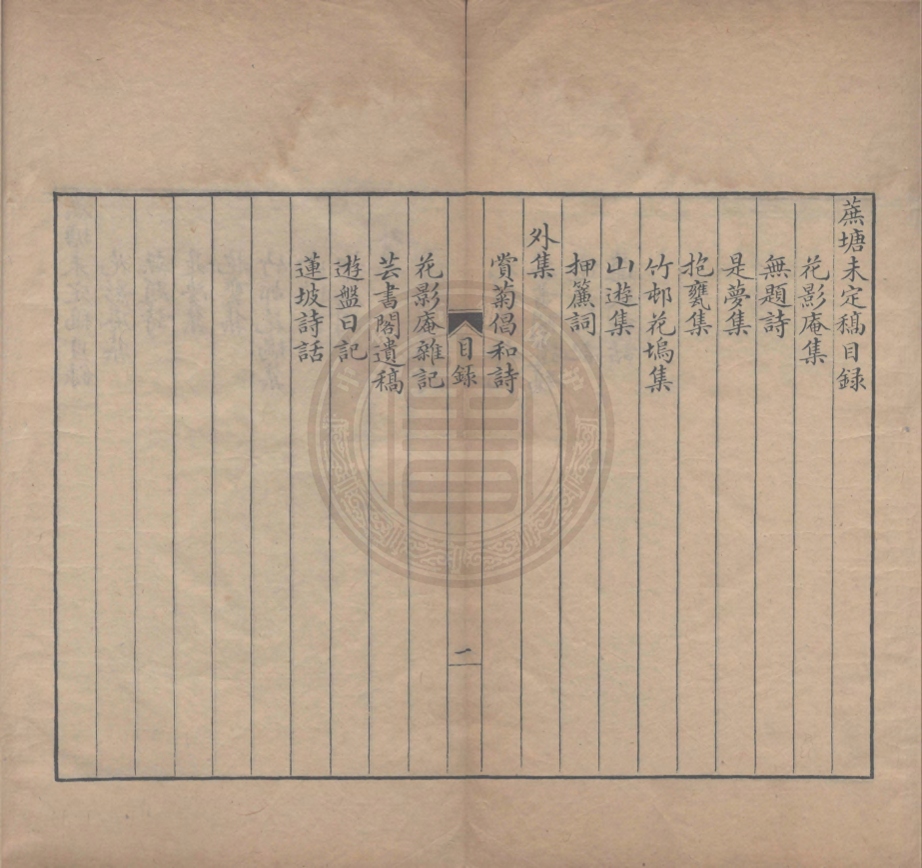 蔗塘未定稿目録
花影庵集
無題詩
是夢集
抱甕集
竹邨花塢集
山遊集
押簾詞
外集
賞菊倡和詩
目録
一
花影庵雜記
芸書閣遺稿
遊盤日記
蓮坡詩話